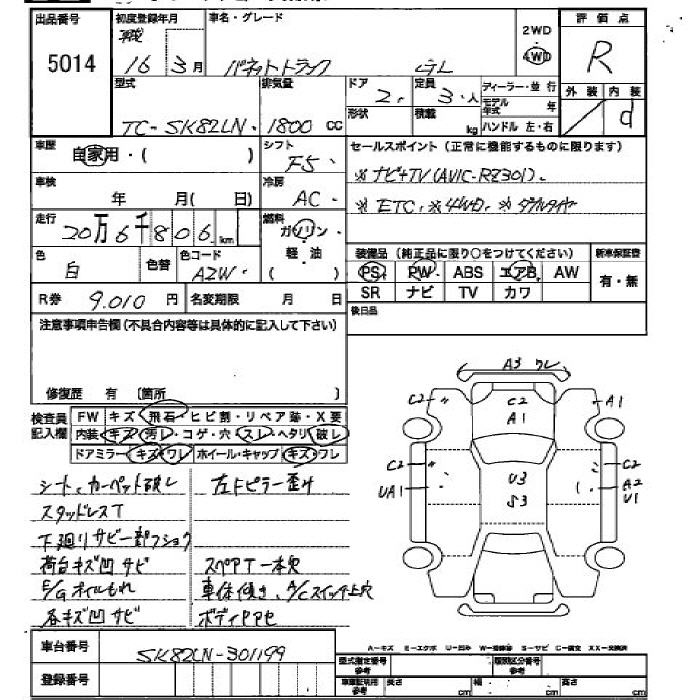 出品番号 初度登録年月 車名・グレード 2WD 評価点
5014 16 3月 バネットトラック GL 4WD R
型式 排気量 ドア 2 定員 3人 ディーラー・並行 外装 内装
TC-SK82LN 1800 CC 形状 積載 kg モデル年式 年 ハンドル 左・右 d
車歴 自家用・( ) シフト F5 セールスポイント(正常に機能するものに限ります)
車検 年 月( 日) 冷房 AC ※ナビ+TV(AVIC-RZ301)
走行 20万6千806km 燃料 ガソリン・軽油 ( ) ※ETC, ※4WD, ※ダブルタイヤ
色 白 色替 色コード A2W 装備品(純正品に限り○をつけてください) 新車保証書
PS PW ABS エアB AW 有・無
R券 9,010円 名変期限 月 日 SR ナビ TV カワ
後日品
注意事項申告欄(不具合内容等は具体的に記入して下さい)
修復歴 有 〔箇所 〕
A3 ワレ
C2 C2 A1 A1
検査員記入欄 FW キズ・飛石・ヒビ割・リペア跡・X要
内装 キズ・汚レ・コゲ・穴・スレ・ヘタリ・破レ
ドアミラー キズ・ワレ ホイール・キャップ キズ・ワレ
C2 UA1 U3 S3 C2 A2 U1
シート、カーペット破レ 左Fピラー歪み
スタッドレスT
下廻リサビ一部フショク
荷台キズ凹サビ スペアT一本欠
E/Gオイルもれ 車体傾き、A/Cスイッチ上穴
各キズ凹サビ ボディPアセ
A-キズ E-エクボ U-凹み W-補修跡 S-サビ C-腐食 XX-交換済
車台番号 SK82LN-301199
型式指定番号 参考 類別区分番号 参考
登録番号 車庫証明用参考 長さ cm 幅 cm 高さ cm